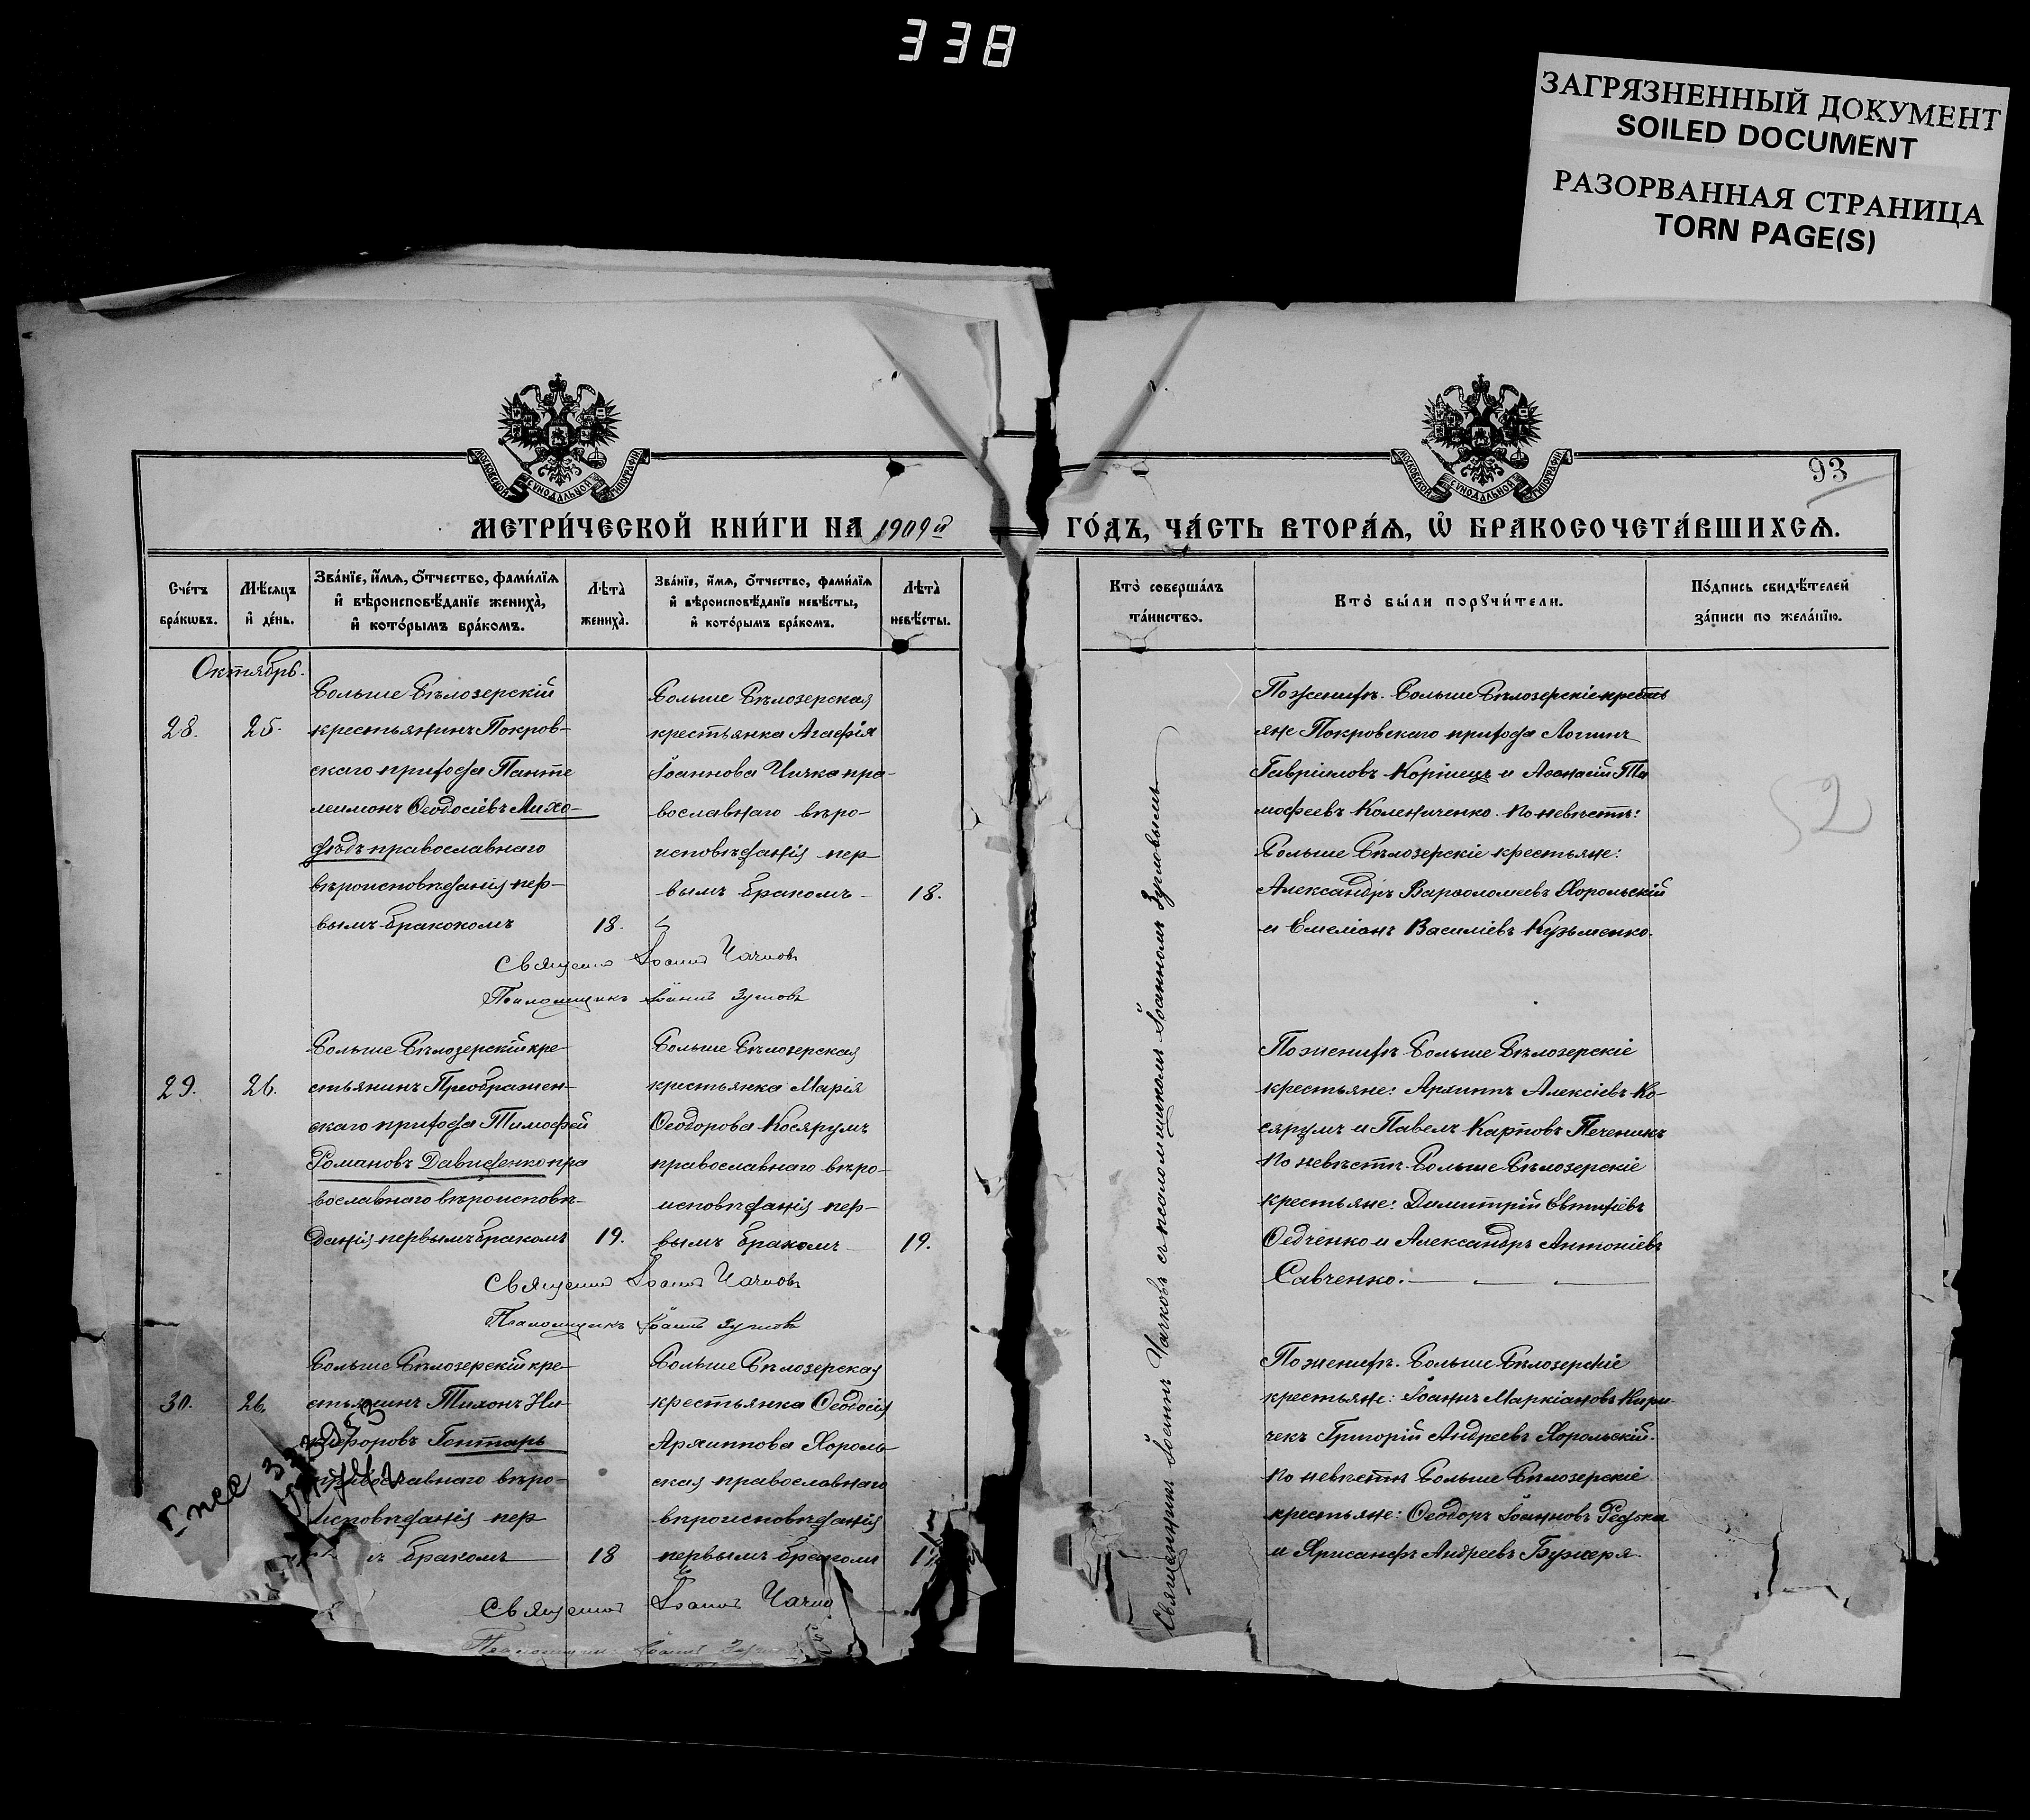 338
ЗАГРЯЗНЕННЫЙ ДОКУМЕНТ
SOILED DOCUMENT
РАЗОРВАННАЯ СТРАНИЦА
TORN PAGE(S)
МОСКОВСКОЙ СѴНОДАЛЬНОЙ ТИПОГРАФІИ
МОСКОВСКОЙ СѴНОДАЛЬНОЙ ТИПОГРАФІИ
93
МЕТРИ́ЧЕСКОЙ КНИ́ГИ НА 1909й ГО́ДЪ, ЧА́СТЬ ВТОРА́Ѧ, Ѡ҆ БРАКОСОЧЕТА́ВШИХСѦ.
Сче́тъ
бра́кѡвъ.
Мѣ́сяцъ
и҆ де́нь.
Зва́нїе, и҆́мѧ, ѻ҆́тчество, фами́лїѧ
и҆ вѣроисповѣ́данїе жениха̀,
и҆ кото́рымъ бра́комъ.
Лѣта̀
жениха̀.
Зва́нїе, и҆́мѧ, ѻ҆́тчество, фами́лїѧ
и҆ вѣроисповѣ́данїе невѣ́сты,
и҆ кото́рымъ бра́комъ.
Лѣта̀
невѣ́сты.
Кто̀ соверша́лъ
та́инство.
Кто̀ бы́ли порꙋчи́тели.
По́дпись свидѣ́телей
за́писи по жела́нїю.
Октябрь.
28.
25.
Больше Бѣлозерскій
крестьянинъ Покров-
скаго прихода Панте
леимонъ Ѳеодосіевъ Лихо-
дѣдъ православнаго
вѣроисповѣданія пер-
вымъ бракокомъ
18.
Больше Бѣлозерская
крестьянка Агафія
Іоаннова Чичка пра-
вославнаго вѣро-
исповѣданія пер
вымъ бракомъ
18.
По женихѣ. Больше Бѣлозерскіе кресть
яне Покровскаго прихода Логгинъ
Гавріиловъ Корінецъ и Аѳанасій Ти
мофеевъ Колениченко. По невѣстѣ:
Больше Бѣлозерскіе крестьяне:
Александръ Варѳоломеевъ Хорольскій
и Емеліанъ Василіевъ Кузьменко.
Священникъ Іоаннъ Чачковъ съ псаломщикомъ Іоанномъ
52
Іоаннъ
Псаломщикъ Іоаннъ
29.
26.
Больше Бѣлозерскій кре-
стьянинъ Преображен-
скаго прихода Тимофей
Романовъ Давиденко пра
вославнаго вѣроисповѣ-
данія первымъ бракомъ
19.
Больше Бѣлозерская
крестьянка Марія
Ѳеодорова Косярумъ
православнаго вѣро-
исповѣданія пер-
вымъ бракомъ
19.
По женихѣ Больше Бѣлозерскіе
крестьяне: Архиппъ Алексіевъ Ко-
сярумъ и Павелъ Карповъ Печеникъ
По невѣстѣ Больше Бѣлозерскіе
крестьяне: Димитрій Евтихіевъ
Ѳедченко и Александръ Антоніевъ
Савченко.
Іоаннъ
Псаломщикъ Іоаннъ
30.
26.
Больше Бѣлозерскій кре-
стьянинъ Тихонъ Ни-
кифоровъ Гонтарь
православнаго вѣро-
исповѣданія пер
бракомъ
18
Больше Бѣлозерская
крестьянка Ѳеодосія
Архиппова Хороль-
ская православнаго
вѣроисповѣданія
первымъ бракомъ
По женихѣ. Больше Бѣлозерскіе
крестьяне: Іоаннъ Маркіановъ Кири-
чекъ Григорій Андреевъ Хорольскій.
По невѣстѣ Больше Бѣлозерскіе
крестьяне: Ѳеодоръ Іоанновъ Редька
и Хрисанфъ Андреевъ
Іоаннъ